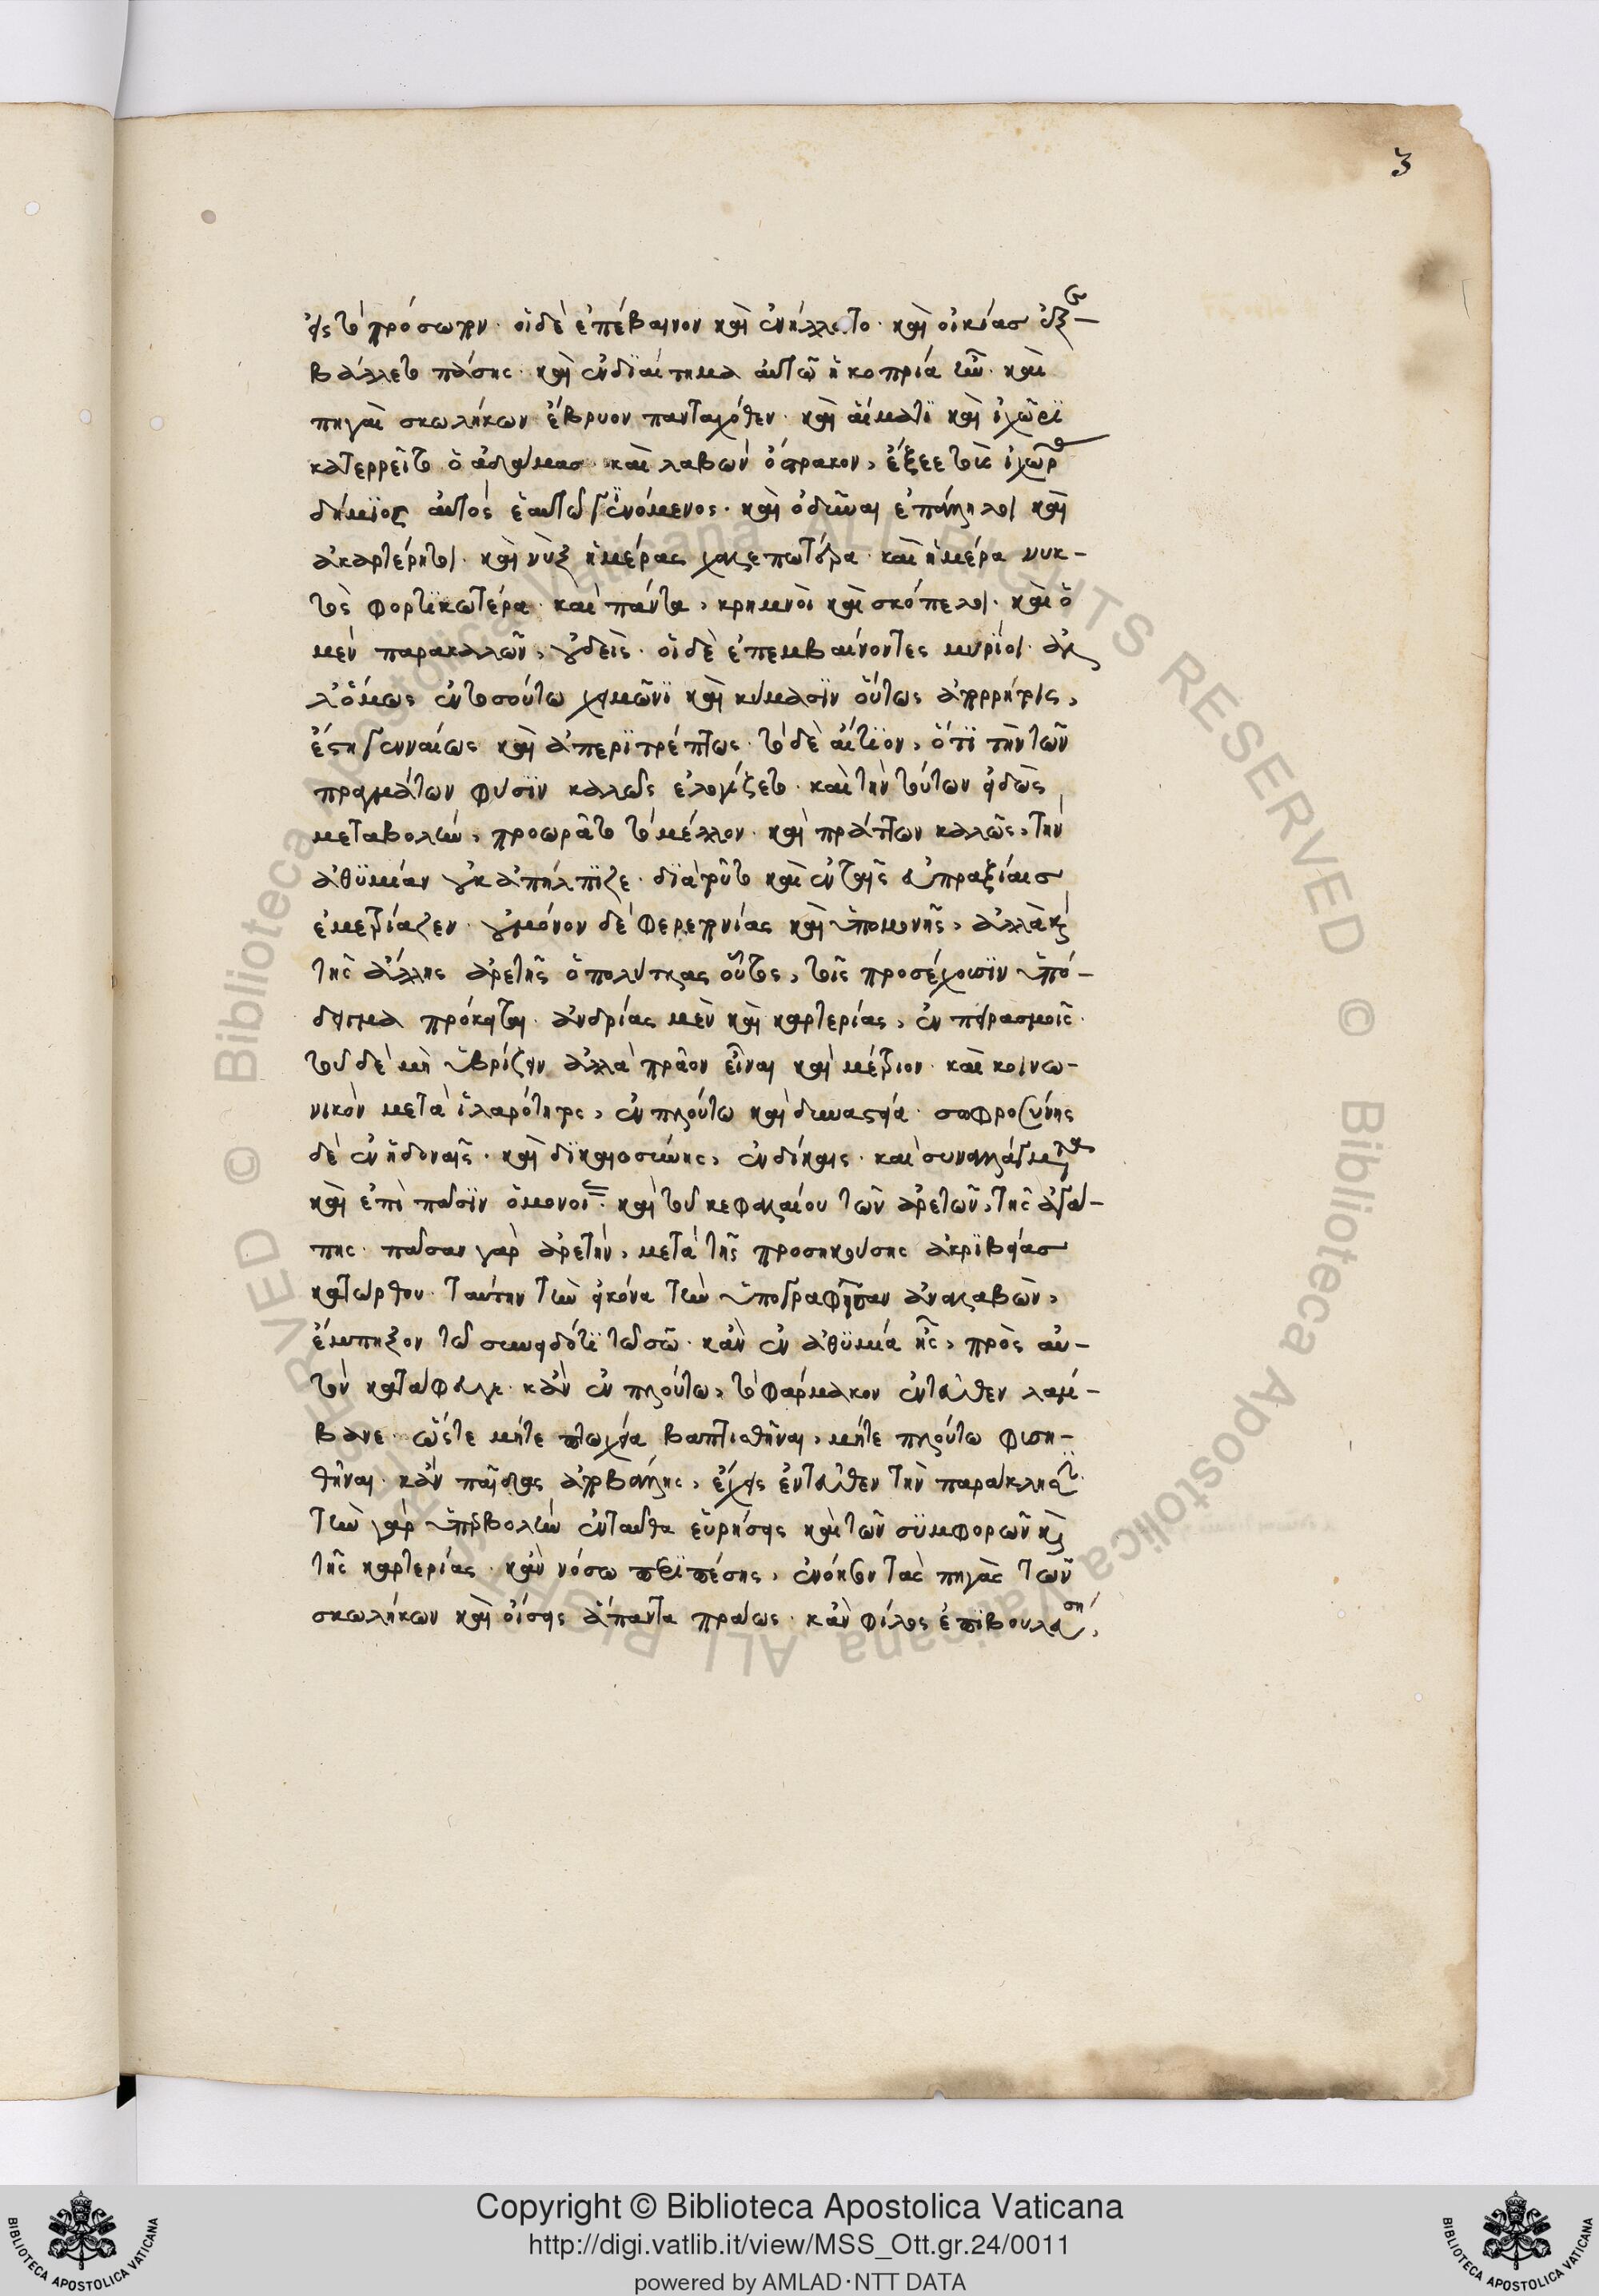 3
εἰς τὸ πρόσωπον. οἱ δὲ ἐπέβαινον καὶ ἐνήλλοντο. καὶ οἰκίας ἐξε-
βάλλετο πάσης. καὶ ἐνδιαίτημα αὐτῶ ἡ κοπρία ἦν. καὶ
πηγαὶ σκωλήκων ἔβρυον πανταχόθεν. καὶ αἵματι καὶ ἰχῶρι
κατερρεῖτο ὁ ἀδάμας. καὶ λαβὼν ὄστρακον, ἔξεε τοὺς ἰχῶρας
δήμιος αὐτὸς ἑαυτῶ γινόμενος. καὶ ὀδύναι ἐπάλληλοι καὶ
ἀκαρτέρητοι. καὶ νὺξ ἡμέρας χαλεπωτέρα. καὶ ἡμέρα νυκ-
τὸς φορτικωτέρα. καὶ πάντα, κρημνοὶ καὶ σκόπελοι. καὶ ὁ
μὲν παρακαλῶν, οὐδεὶς. οἱ δὲ ἐπεμβαίνοντες μυρίοι. ἀλ
λ' ὅμως ἐν τοσούτω χειμῶνι καὶ κύμασιν οὕτως ἀπορρήτοις,
ἔστη γενναίως καὶ ἀπεριτρέπτως. τὸ δὲ αἴτιον, ὅτι τὴν τῶν
πραγμάτων φύσιν καλῶς ἐλογίζετο. καὶ τὴν τούτων εἰδὼς
μεταβολὴν, προωρᾶτο τὸ μέλλον. καὶ πράττων καλῶς, τὴν
ἀθυμίαν οὐκ ἀπήλπιζε. διὰ τοῦτο καὶ ἐν ταῖς δυσπραξίαις
ἐμετρίαζεν. οὐ μόνον δὲ φερεπονίας καὶ ὑπομονῆς, ἀλλὰ καὶ
τῆς ἄλλης ἀρετῆς ὁ πολύτλας οὗτος, τοῖς προσέχουσιν ὑπό-
δειγμα πρόκειται. ἀνδρίας μὲν καὶ καρτερίας, ἐν πειρασμοῖς.
τοῦ δὲ μὴ ὑβρίζειν ἀλλὰ πρᾶον εἶναι καὶ μέτριον. καὶ κοινω-
νικὸν μετὰ ἱλαρότητος, ἐν πλούτω καὶ δυναστεία. σωφροσύνης
δὲ ἐν ἡδοναῖς. καὶ δικαιοσύνης, ἐν δίκαις. καὶ συναλλάγμασι
καὶ ἐπὶ πᾶσιν ὁμονοίας. καὶ τοῦ κεφαλαίου τῶν ἀρετῶν, τῆς ἀγά-
πης. πᾶσαν γὰρ ἀρετὴν, μετὰ τῆς προσηκούσης ἀκριβείας
κατώρθου. ταύτην τὴν εἰκόνα τὴν ὑπογραφεῖσαν ἀναλαβὼν,
ἔμπηξον τῶ συνειδότι τῶ σῶ. κἂν ἐν ἀθυμία ἦς, πρὸς αὐ-
τὸν κατάφευγε. κἂν ἐν πλούτω, τὸ φάρμακον ἐντεῦθεν λάμ-
βανε. ὥστε μήτε πτωχεία βαπτισθῆναι, μήτε πλούτω φυση-
θῆναι. κἂν παῖδας ἀποβάλης, ἔχεις ἐντεῦθεν τὴν παράκλησιν.
τὴν γὰρ ὑπερβολὴν ἐνταῦθα εὑρήσεις καὶ τῶν συμφορῶν καὶ
τῆς καρτερίας. κἂν νόσω περιπέσης, ἐνόησον τὰς πηγὰς τῶν
σκωλήκων καὶ οἴσεις ἅπαντα πράως. κἂν φίλος ἐπιβουλεύση,
Copyright © Biblioteca Apostolica Vaticana
http://digi.vatlib.it/view/MSS_Ott.gr.24/0011
powered by AMLAD·NTT DATA